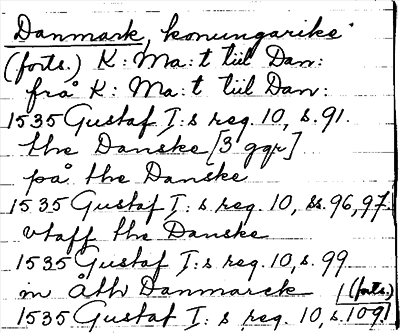 Danmark, konungarike
(forts.) K: Ma:t till Dan:
från K: Ma:t till Dan:
1535 Gustaf I:s reg. 10, s. 91.
the Danske [3 ggr]
på the Danske
1535 Gustaf I:s reg. 10, ss. 96, 97.
vtaff the Danske
1535 Gustaf I:s reg. 10, s. 99
in åth Danmarck (forts.)
1535 Gustaf I:s reg. 10, s. 109